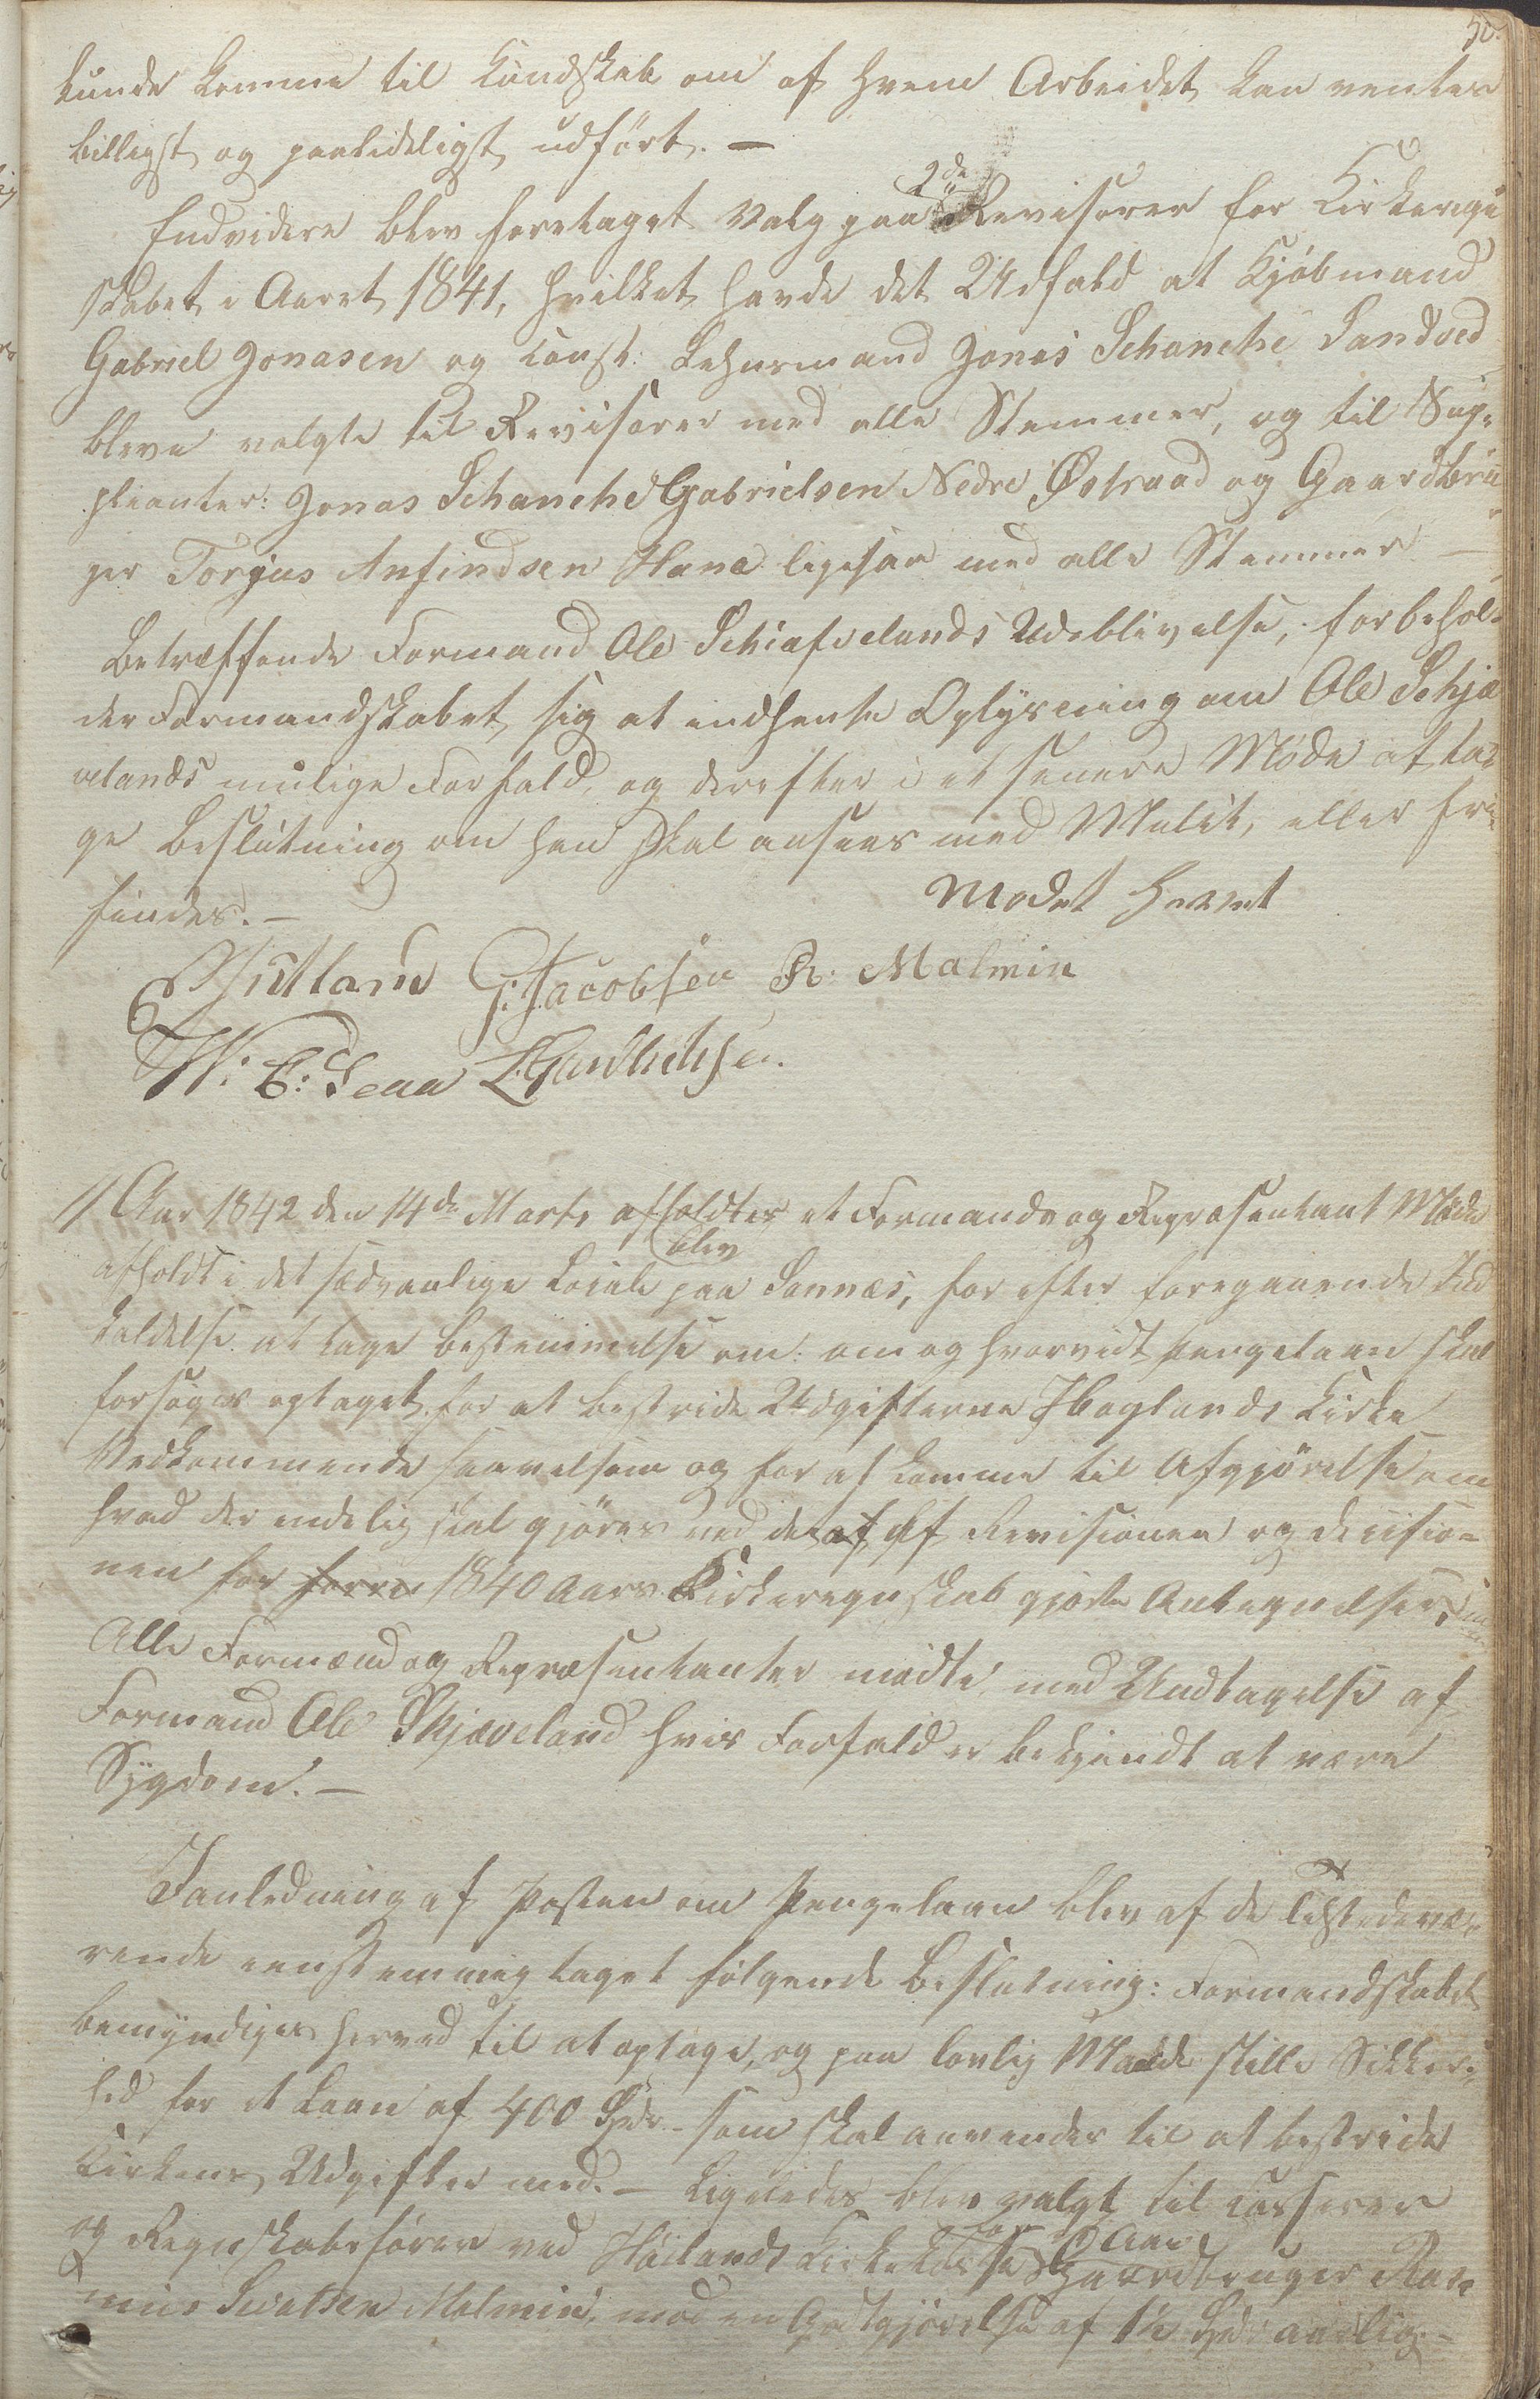 50.
kunde komme til Kundskab om af hvem Arbeidet kan ventes
billigst og paalideligst udført. —
Endvidere blev foretaget Valg paa 2de Revisorer for Kirkeregn
skabet i Aaret 1841, hvilket havde det Udfald at Kjøbmand
Gabriel Jonasen og Const: Lehnsmand Jonas Schanche Sandved
bleve valgte til Revisorer med alle Stemmer, og til Sup-
plianter: Jonas Schanche Gabrielsen Nedre Østraad og Gaardbru-
ger Torjus Anfindsen Hana ligesaa med alle Stemmer —
Betræffende Formand Ole Schiæfvelands Udeblivelse, forbehol-
der Formandskabet sig at indhente Oplysning om Ole Schjæ
velands mulige Forfald, og derefter i et senere Møde at ta-
ge Beslutning om han skal ansees med Mulct, eller fri-
findes. —
Mødet hævet
G. Jacobsen R. Malmin
W. E:
// Aar 1842 den 14de Marts afholdtes et Formands og Repræsentant Møde
blev
afholdt i det sædvanlige Locale paa Sannæs, for efter foregaaende Ind
kaldelse at tage Bestemmelse om: om og hvorvidt Pengelaan skal
forsøges optaget for at bestride Udgifterne Høylands Kirke
Vedkommende saavelsom og for at komme til Afgjørelse om
hvad der endelig skal gjøres ved de af Revisionen og Decisio-
nen for 1840 Aars Kirkeregnskab gjorte Antegnelser,
Alle Formænd og Repræsentanter mødte med Undtagelse af
Formand Ole Skjæveland hvis Forfald er bekjendt at være
Sygdom. —
I Anledning af Posten om Pengelaan blev af de Tilstedevæ-
rende eenstemmig taget følgende Beslutning: Formandskabet
bemyndiges herved til at optage, og paa lovlig Maade stille Sikker-
hed for et Laan af 400 Spd. som skal anvendes til at bestride
Kirkens Udgifter med. — Ligeledes blev valgt til Casserer
og Regnskabsfører ved Høilands Kirkekasse for Aar Gaardbruger Ras-
mus Sivertsen Malmin, mod en Godtgjørelse af 1½ Spd: aarlig. —